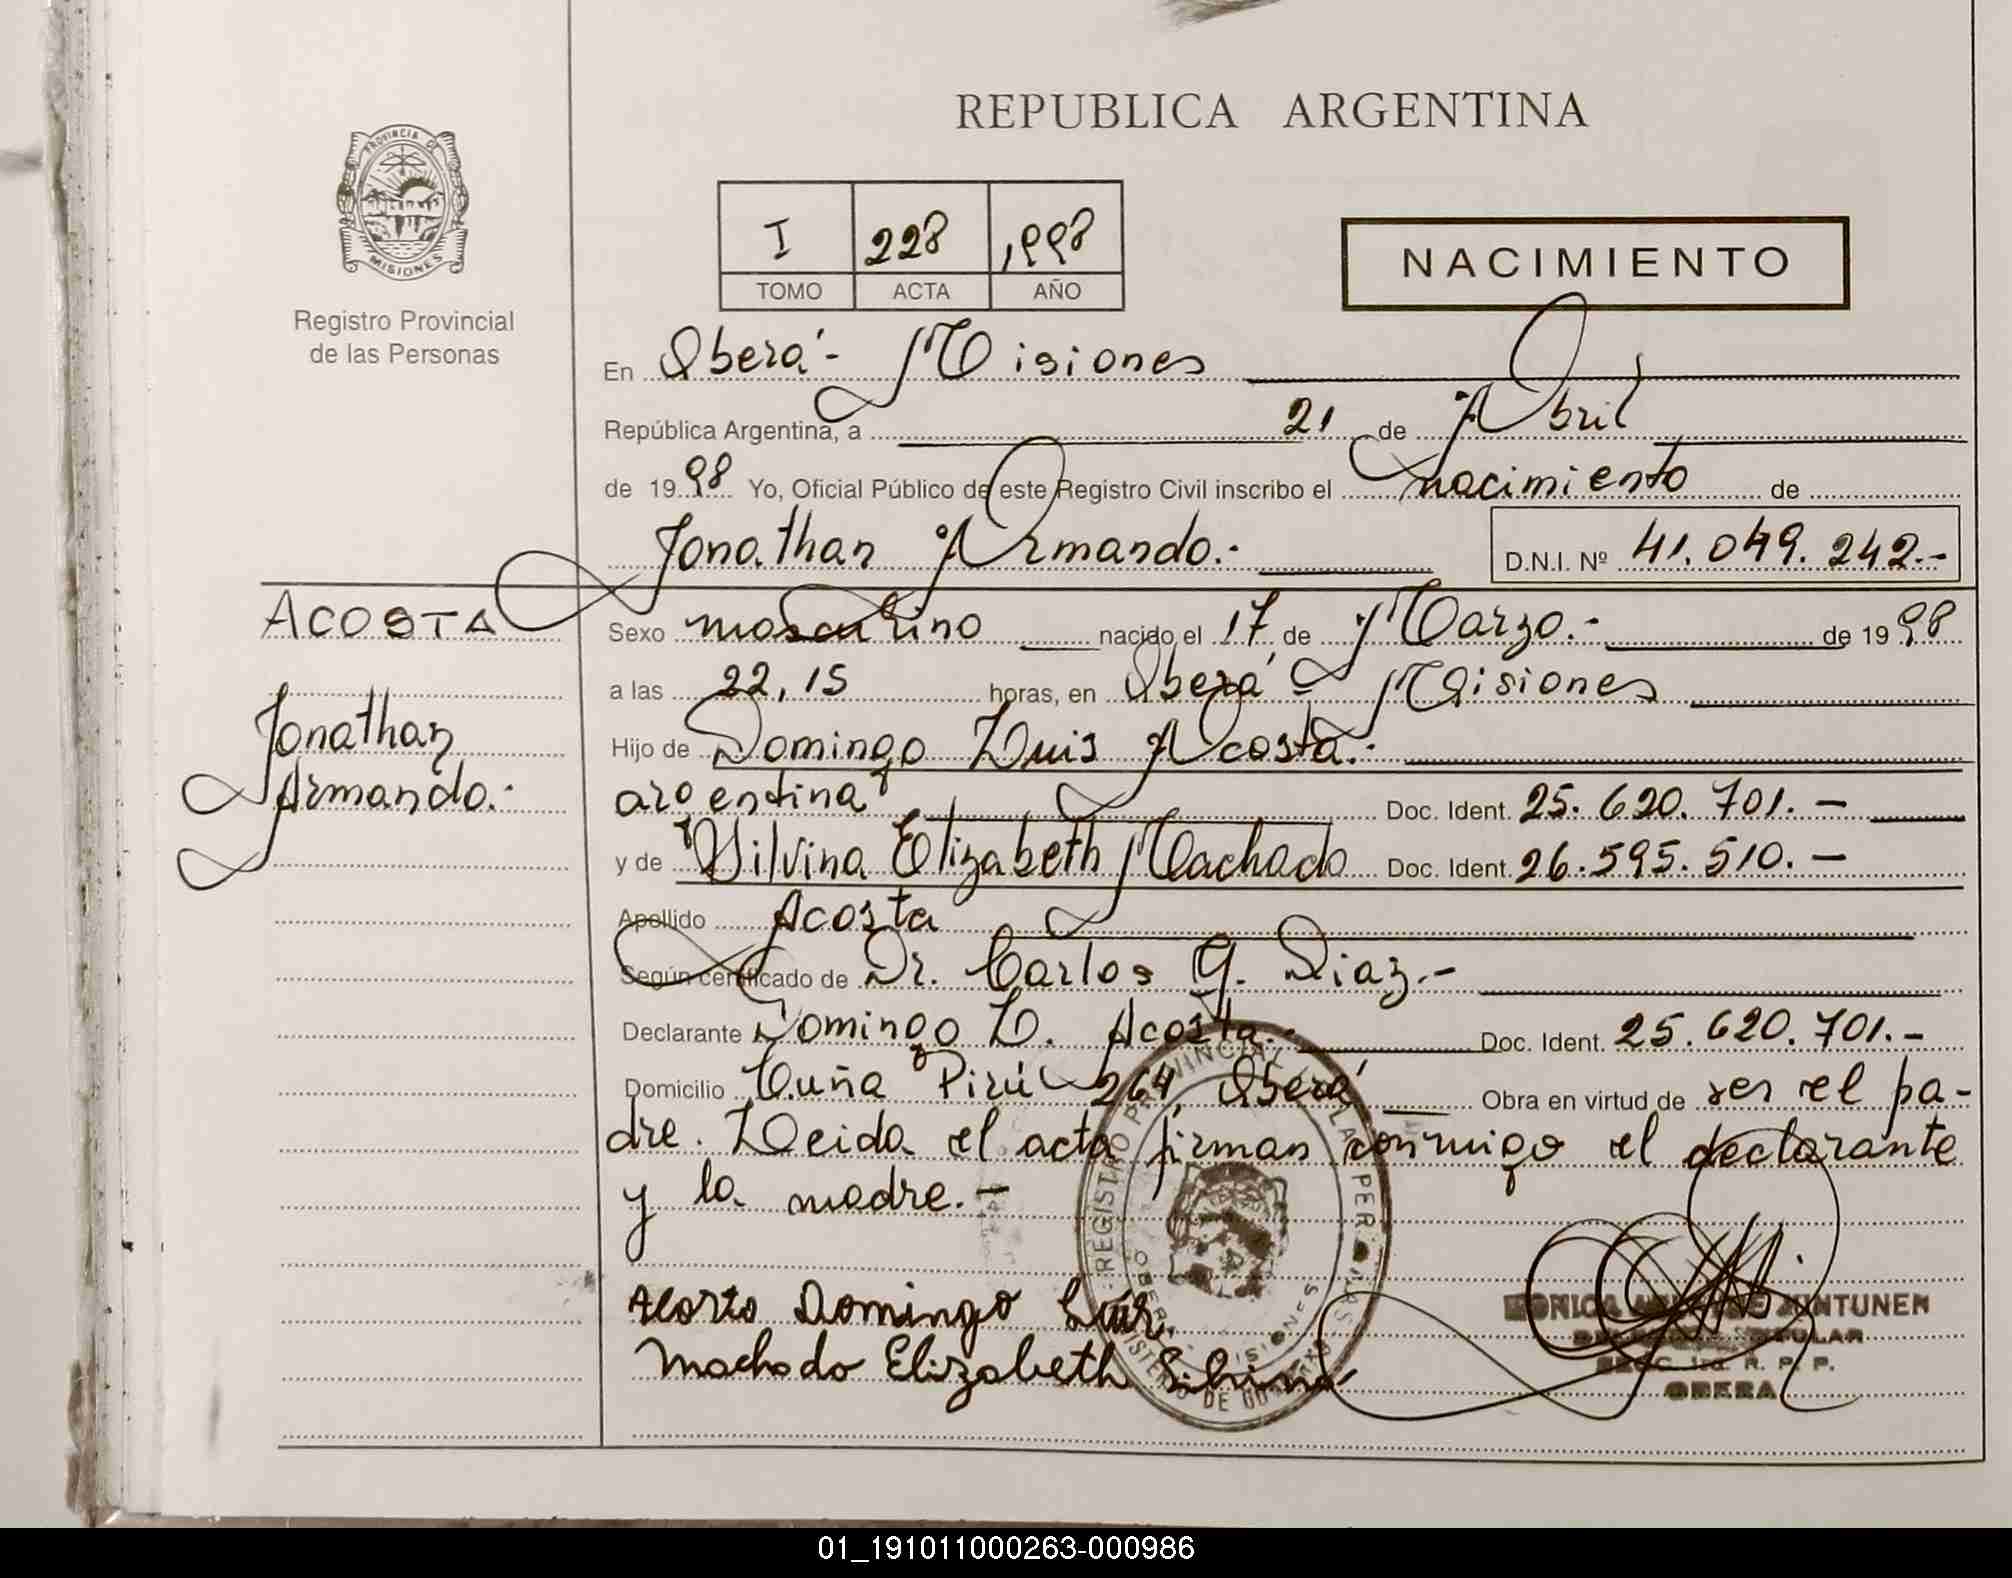 REPUBLICA ARGENTINA
PROVINCIA DE
MISIONES
Registro Provincial
de las Personas
I 228 1998
TOMO ACTA AÑO
NACIMIENTO
En Oberá - Misiones
República Argentina, a 21 de Abril
de 1998 Yo, Oficial Público de este Registro Civil inscribo el nacimiento de
Jonathan Armando.-
D.N.I. Nº 41.049.242.-
ACOSTA
Jonathan
Armando.-
Sexo masculino nacido el 17 de Marzo.- de 1998
a las 22,15 horas, en Oberá - Misiones
Hijo de Domingo Luis Acosta.-
argentina Doc. Ident. 25.620.701.-
y de Silvina Elizabeth Machado Doc. Ident. 26.595.510.-
Apellido Acosta
Según certificado de Dr. Carlos G. Diaz.-
Declarante Domingo L. Acosta.- Doc. Ident. 25.620.701.-
Domicilio Cuña Pirú 264, Oberá Obra en virtud de ser el pa-
dre. Leida el acta firman conmigo el declarante
y la madre.-
REGISTRO PROVINCIAL DE LAS PERSONAS
MISIONES
Acosta Domingo Luis
Machado Elizabeth Silvina
MONICA JUNTUNEN
TITULAR
R. P. P.
OBERA
01_191011000263-000986